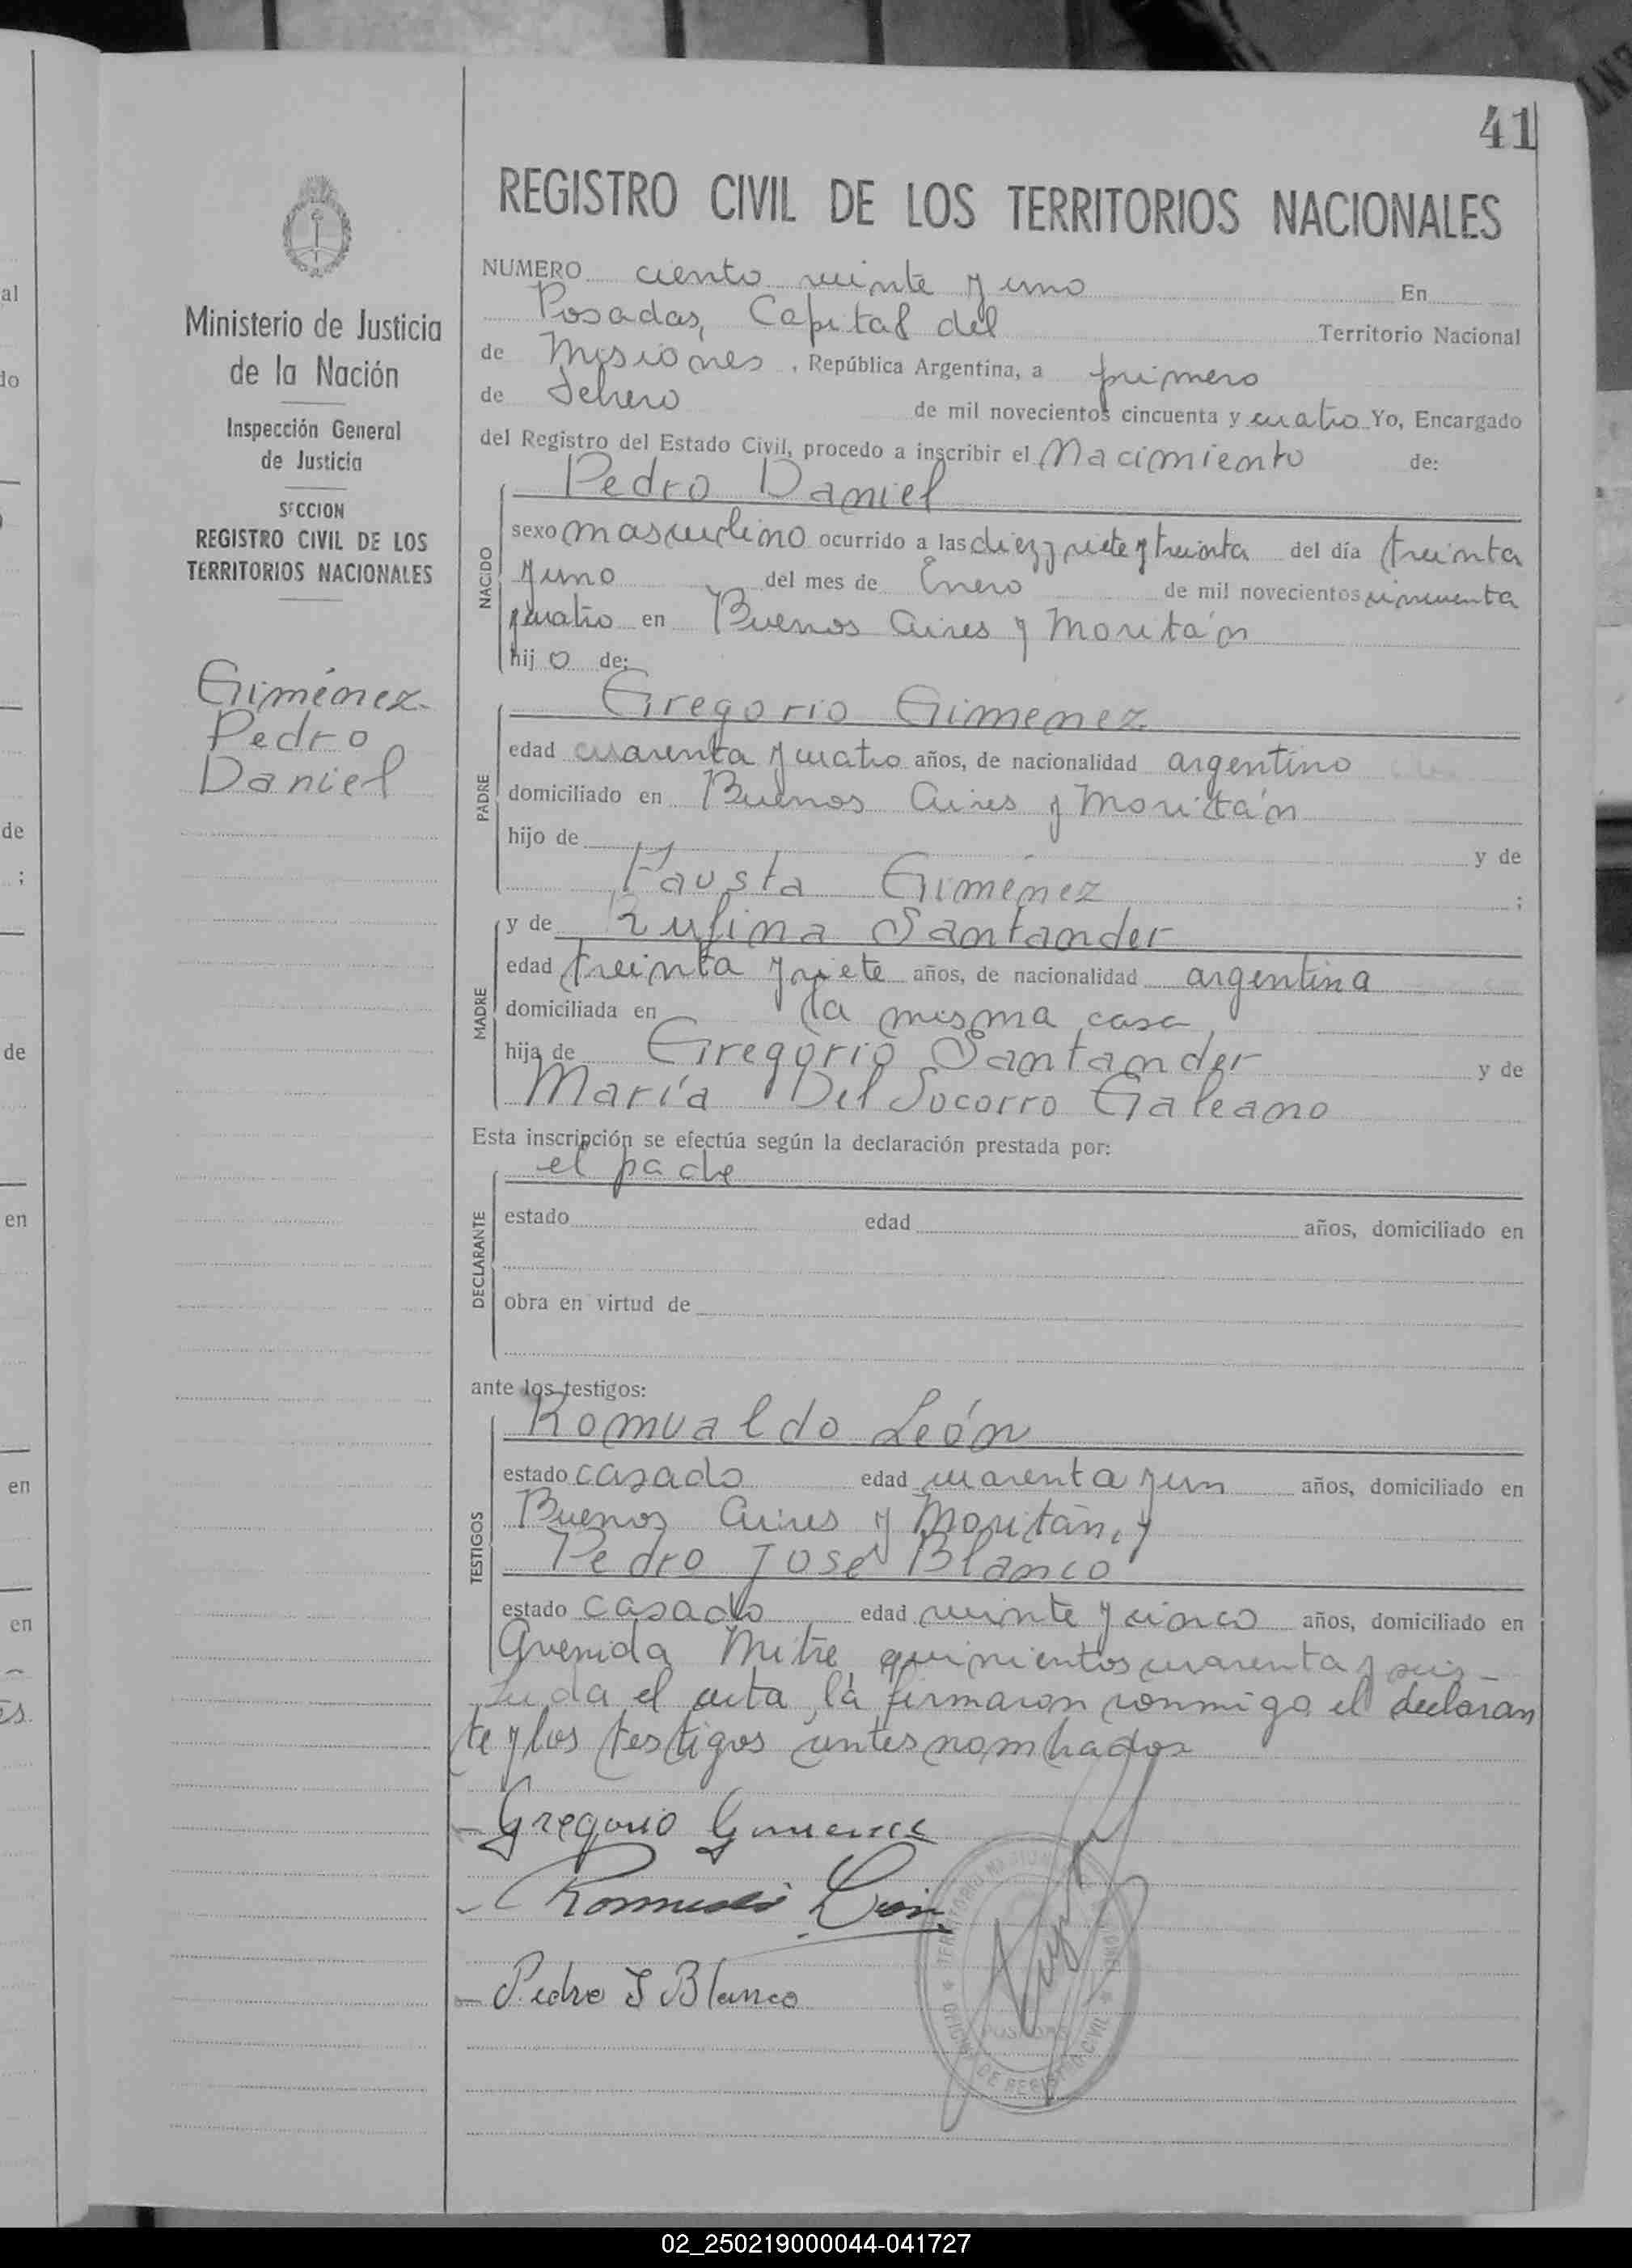 41
REGISTRO CIVIL DE LOS TERRITORIOS NACIONALES
Ministerio de Justicia
de la Nación
Inspección General
de Justicia
SECCION
REGISTRO CIVIL DE LOS
TERRITORIOS NACIONALES
Giménez
Pedro
Daniel
NUMERO ciento veinte y uno En
Posadas, Capital del Territorio Nacional
de Misiones, República Argentina, a primero
de Febrero de mil novecientos cincuenta y cuatro Yo, Encargado
del Registro del Estado Civil, procedo a inscribir el Nacimiento de:
Pedro Daniel
NACIDO
sexo masculino ocurrido a las diez y siete y treinta del día treinta
y uno del mes de Enero de mil novecientos cincuenta
y cuatro en Buenos Aires y Moritán
hijo de:
Gregorio Gimenez
PADRE
edad cuarenta y cuatro años, de nacionalidad argentino
domiciliado en Buenos Aires y Moritán
hijo de y de
Fausta Giménez ;
y de Rufina Santander
MADRE
edad treinta y siete años, de nacionalidad argentina
domiciliada en la misma casa,
hija de Gregorio Santander y de
María Del Socorro Galeano
Esta inscripción se efectúa según la declaración prestada por:
el padre
DECLARANTE
estado edad años, domiciliado en
obra en virtud de
ante los testigos:
Romualdo León
TESTIGOS
estado casado edad cuarenta y un años, domiciliado en
Buenos Aires y Moritán, y
Pedro José Blanco
estado casado edad veinte y cinco años, domiciliado en
Avenida Mitre quinientos cuarenta y seis-
Leida el acta, la firmaron conmigo el declaran
te y los testigos antes nombrados
Gregorio Gimenez
Romualdo León
Pedro J Blanco
TERRITORIO NACIONAL
POSADAS
OFICINA DE REGISTRO CIVIL
al
do
de
;
de
en
en
en
es.
02_250219000044-041727